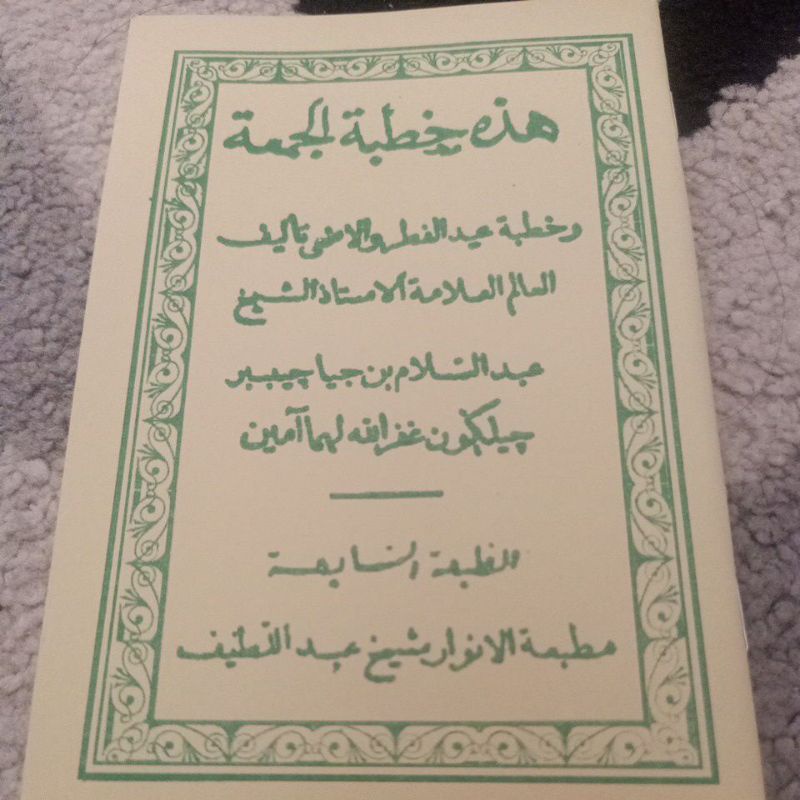 هذه خطبة الجمعة
وخطبة عيد الفطر والاضحى تأليف
العالم العلامة الاستاذ الشيخ
عبد السلام بن جيا چيبير
چيلكون غفر الله لهما آمين
الطبعة السابعة
مطبعة الانوار شيخ عبد اللطيف